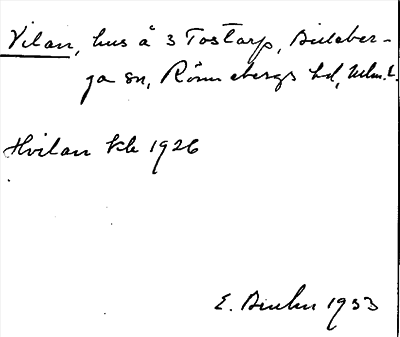 Vilan, hus å 3 Tostarp, Billeber-
ga sn, Rönnebergs hd, Mlm. l.
Hvilan Kb 1926
E. 1933